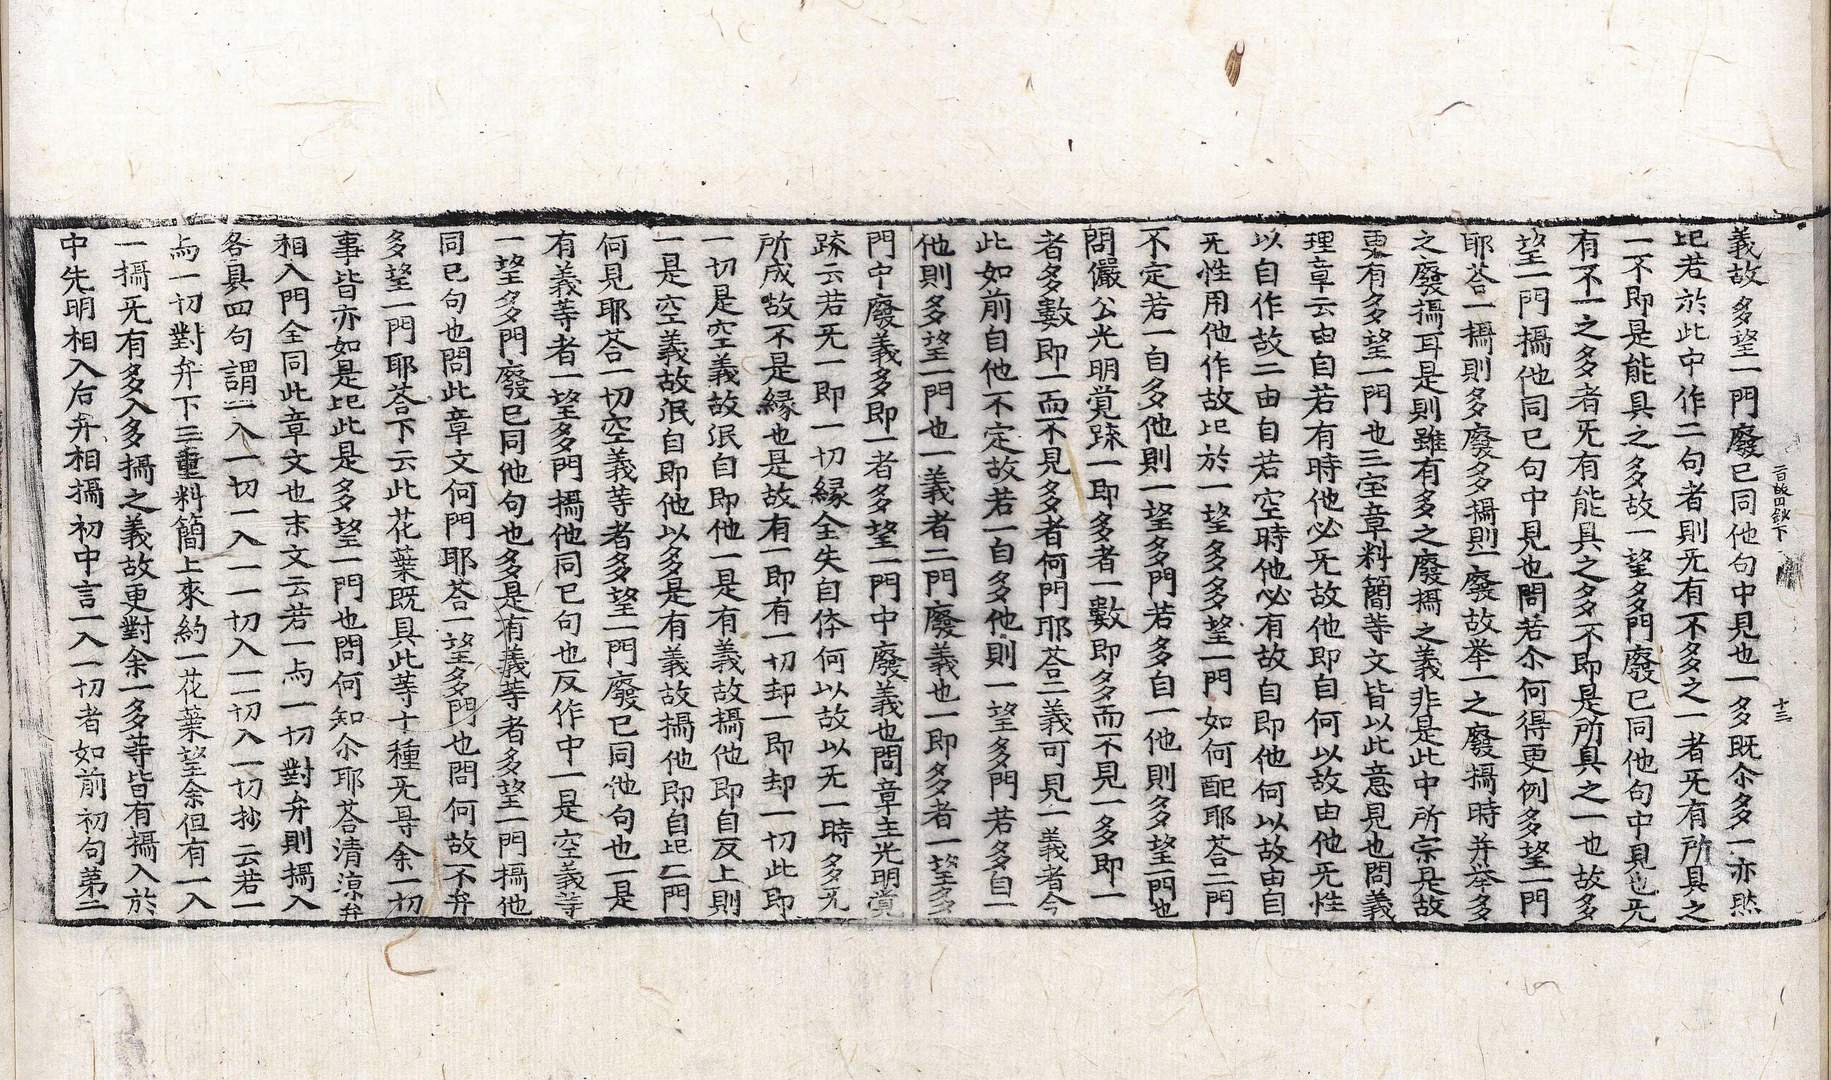 義故多望一門廢已同他句中見也一多既尒多一亦然
一百故四鈔下 十三
疋若於此中作二句者則旡有不多之一者旡有所具之
一不即是能具之多故一望多門廢已同他句中見也旡
有不一之多者旡有能具之多不即是所具之一也故多
望一門攝他同已句中見也問若尒何得更例多望一門
耶荅一攝則多廢多攝則一廢故举一之廢攝時并举多
之廢攝耳是則雖有多之廢攝之義非是此中所宗是故
更有多望一門也三宝章料簡等文皆以此意見也問義
理章云由自若有時他必旡故他即自何以故由他旡性
以自作故二由自若空時他必有故自即他何以故由自
旡性用他作故疋於一望多多望一門如何配耶荅二門
不定若一自多他則一望多門若多自一他則多望一門也
問儼公光明覚踈一即多者一數即多而不見一多即一
者多數即一而不見多者何門耶荅二義可見一義者今
此如前自他不定故若一自多他則一望多門若多自一
他則多望一門也一義者二門廢義也一即多者一望多
門中廢義多即一者多望一門中廢義也問章主光明覚
踈云若旡一即一切縁全失自体何以故以旡一時多旡
所成故不是縁也是故有一即有一切却一即却一切此即
一切是空義故泯自即他一是有義故攝他即自反上則
一是空義故泯自即他以多是有義故攝他即自疋二門
何見耶荅一切空義等者多望一門廢已同他句也一是
有義等者一望多門攝他同已句也反作中一是空義等
一望多門廢已同他句也多是有義等者多望一門攝他
同已句也問此章文何門耶荅一望多門也問何故不弁
多望一門耶荅下云此花葉既具此等十種旡㝵余一切
事皆亦如是疋此是多望一門也問何知尒耶荅清凉弁
相入門全同此章文也末文云若一与一切對弁則攝入
各具四句謂一入一切一入一一切入一一切入一切抄云若一
与一切對弁下三重料簡上來約一花葉望余但有一入
一攝旡有多入多攝之義故更對余一多等皆有攝入於
中先明相入后弁相攝初中言一入一切者如前初句第二